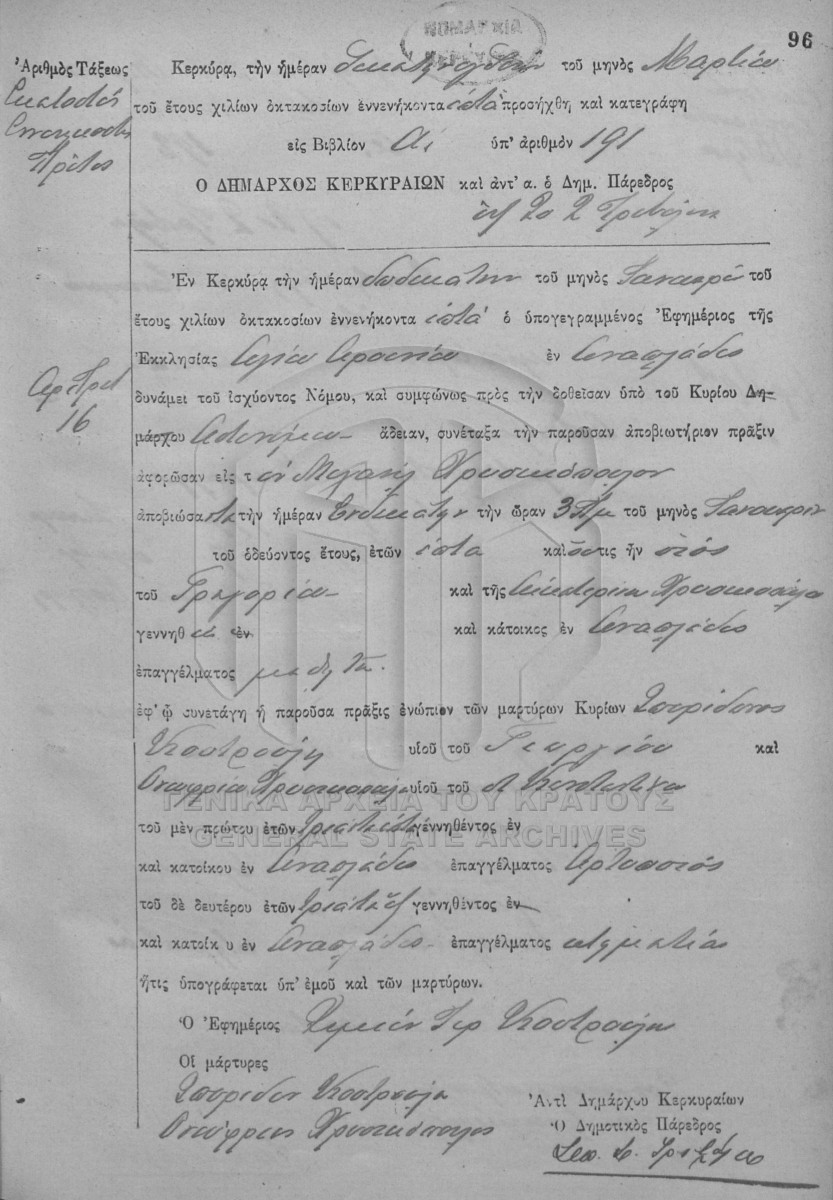 ΝΟΜΑΡΧΙΑ
ΚΕΡΚΥΡΑΣ
96
Ἀριθμὸς Τάξεως
Ἑκατοστός
Ἐννενηκοστός
Πρῶτος
Κερκύρᾳ, τὴν ἡμέραν τοῦ μηνὸς Μαρτίου
τοῦ ἔτους χιλίων ὀκτακοσίων ἐννενήκοντα ἑπτὰ προσήχθη καὶ κατεγράφη
εἰς Βιβλίον Α. ὑπ' ἀριθμὸν 191
Ο ΔΗΜΑΡΧΟΣ ΚΕΡΚΥΡΑΙΩΝ καὶ ἀντ' α. ὁ Δημ. Πάρεδρος
Ἐν Κερκύρᾳ τὴν ἡμέραν δωδεκάτην τοῦ μηνὸς Ἰανουαρίου τοῦ
ἔτους χιλίων ὀκτακοσίων ἐννενήκοντα ἑπτὰ ὁ ὑπογεγραμμένος Ἐφημέριος τῆς
Ἐκκλησίας Ἁγίου Ἀρσενίου ἐν Ἀναπλάδες
δυνάμει τοῦ ἰσχύοντος Νόμου, καὶ συμφώνως πρὸς τὴν δοθεῖσαν ὑπὸ τοῦ Κυρίου Δη-
μάρχου Ἀστυνόμου ἄδειαν, συνέταξα τὴν παροῦσαν ἀποβιωτήριον πρᾶξιν
16
ἀφορῶσαν εἰς τὸν Μιχαὴλ Χρυσικόπουλον
ἀποβιώσαντα τὴν ἡμέραν Ἑνδεκάτην τὴν ὥραν 3 πμ τοῦ μηνὸς Ἰανουαρίου
τοῦ ὁδεύοντος ἔτους, ἐτῶν ἑπτὰ καὶ ὅστις ἦν υἱός
τοῦ Γρηγορίου καὶ τῆς Αἰκατερίνης Χρυσικοπούλου
γεννηθεὶς ἐν καὶ κάτοικος ἐν Ἀναπλάδες
ἐπαγγέλματος μαθητοῦ.
ἐφ' ᾧ συνετάγη ἡ παροῦσα πρᾶξις ἐνώπιον τῶν μαρτύρων Κυρίων Σπυρίδωνος
Καστρούλη υἱοῦ τοῦ Γεωργίου καὶ
Ὀνουφρίου Χρυσικοπούλου υἱοῦ τοῦ
ΓΕΝΙΚΑ ΑΡΧΕΙΑ ΤΟΥ ΚΡΑΤΟΥΣ
GENERAL STATE ARCHIVES
τοῦ μὲν πρώτου ἐτῶν γεννηθέντος ἐν
καὶ κατοίκου ἐν Ἀναπλάδες ἐπαγγέλματος Ἀρτοποιός
τοῦ δὲ δευτέρου ἐτῶν γεννηθέντος ἐν
καὶ κατοίκ υ ἐν Ἀναπλάδες ἐπαγγέλματος κτηματίας
ἥτις ὑπογράφεται ὑπ' ἐμοῦ καὶ τῶν μαρτύρων.
Ὁ Ἐφημέριος Ἱερ Καστρούλης
Οἱ μάρτυρες
Σπυρίδων Καστρούλης
Ὀνούφριος Χρυσικόπουλος
Ἀντὶ Δημάρχου Κερκυραίων
Ὁ Δημοτικὸς Πάρεδρος